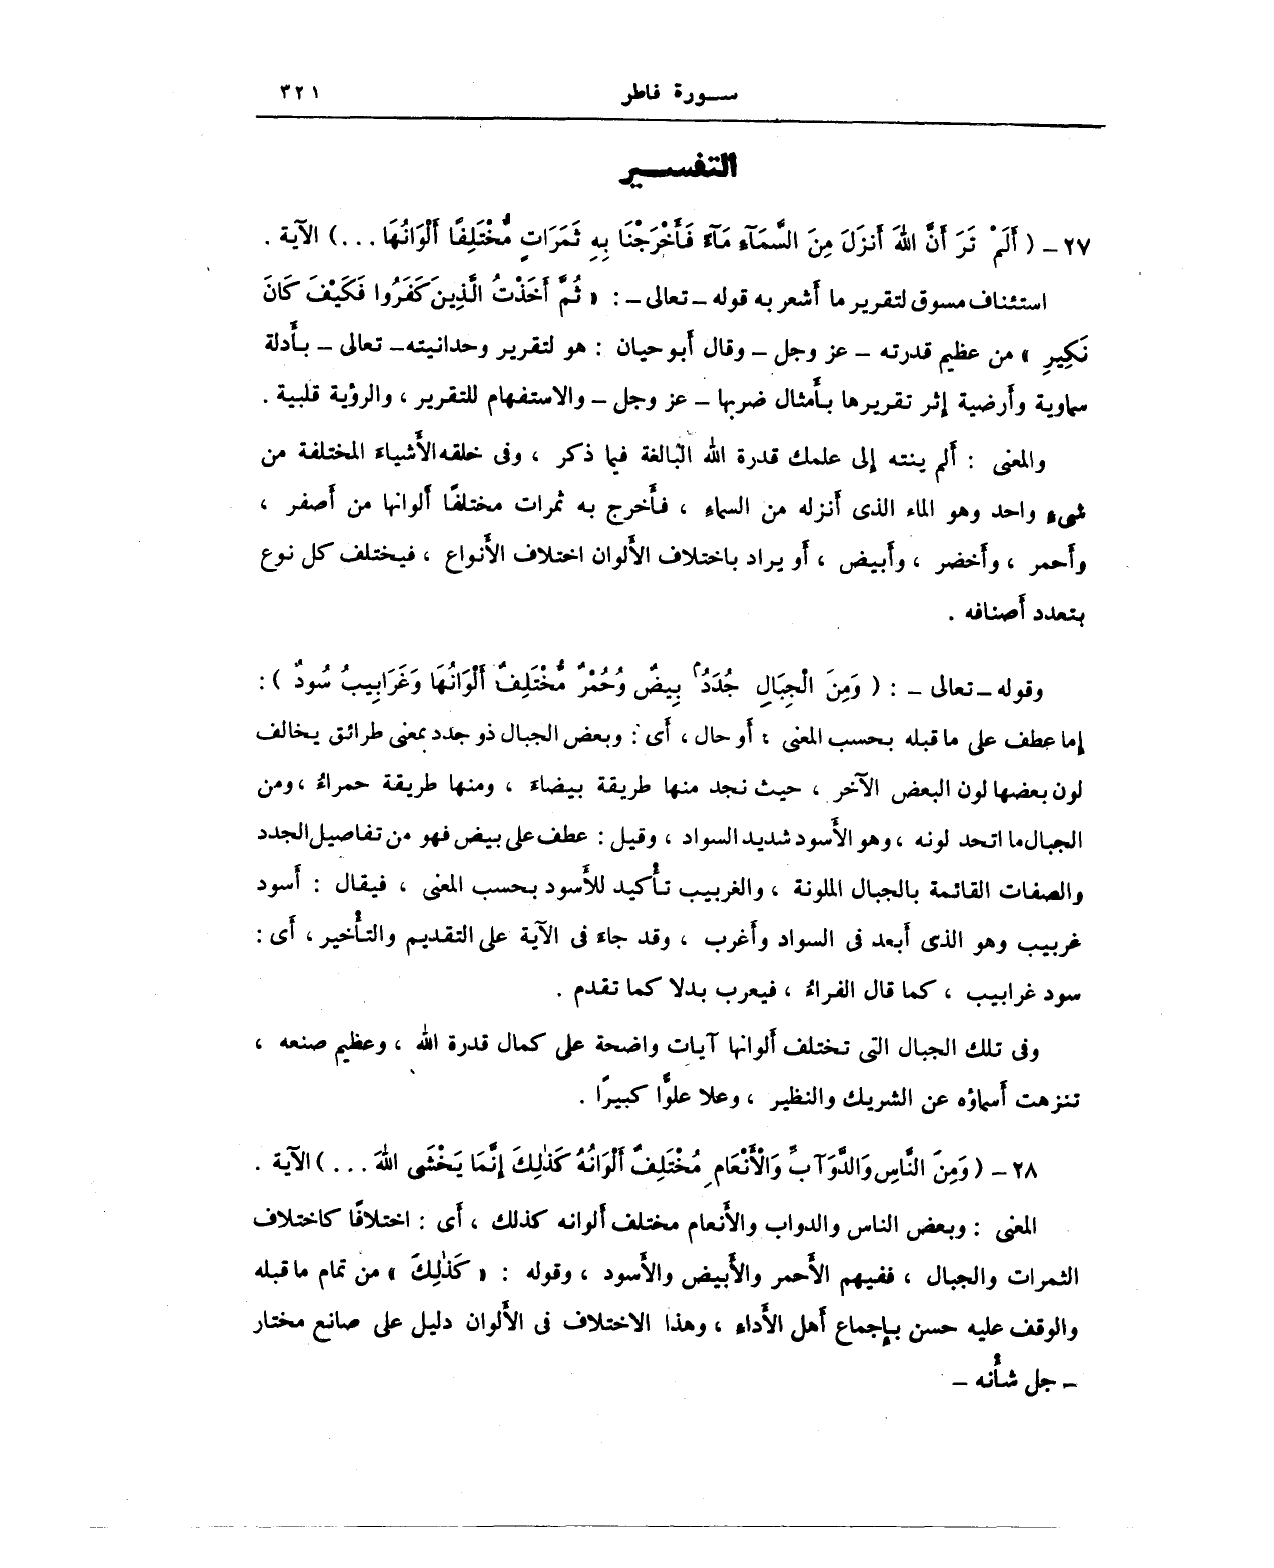 سورة فاطر ٣٢١
التفسير
٢٧ ـ ( أَلَمْ تَرَ أَنَّ اللهَ أَنزَلَ مِنَ السَّمَآءِ مَآءً فَأَخْرَجْنَا بِهِ ثَمَرَاتٍ مُّخْتَلِفًا أَلْوَانُهَا ...) الآية .
استئناف مسوق لتقرير ما أشعر به قوله ـ تعالى ـ : « ثُمَّ أَخَذْتُ الَّذِينَ كَفَرُوا فَكَيْفَ كَانَ
نَكِيرِ » من عظيم قدرته ـ عز وجل ـ وقال أبو حيان : هو لتقرير وحدانيته ـ تعالى ـ بأدلة
سماوية وأرضية إثر تقريرها بأمثال ضربها ـ عز وجل ـ والاستفهام للتقرير ، والرؤية قلبية .
والمعنى : ألم ينته إلى علمك قدرة الله البالغة فيما ذكر ، وفى خلقه الأشياء المختلفة من
شىء واحد وهو الماء الذى أنزله من السماء ، فأخرج به ثمرات مختلفًا ألوانها من أصفر ،
وأحمر ، وأخضر ، وأبيض ، أو يراد باختلاف الألوان اختلاف الأنواع ، فيختلف كل نوع
بتعدد أصنافه .
وقوله ـ تعالى ـ : ( وَمِنَ الْجِبَالِ جُدَدٌ بِيضٌ وَحُمْرٌ مُّخْتَلِفٌ أَلْوَانُهَا وَغَرَابِيبُ سُودٌ ) :
إما عطف على ما قبله بحسب المعنى ، أو حال ، أى : وبعض الجبال ذو جدد بمعنى طرائق يخالف
لون بعضها لون البعض الآخر ، حيث نجد منها طريقة بيضاء ، ومنها طريقة حمراءُ ، ومن
الجبال ما اتحد لونه ، وهو الأسود شديد السواد ، وقيل : عطف على بيض فهو من تفاصيل الجدد
والصفات القائمة بالجبال الملونة ، والغربيب تأكيد للأسود بحسب المعنى ، فيقال : أسود
غربيب وهو الذى أبعد فى السواد وأغرب ، وقد جاء فى الآية على التقديم والتأخير ، أى :
سود غرابيب ، كما قال الفراءُ ، فيعرب بدلا كما تقدم .
وفى تلك الجبال التى تختلف ألوانها آيات واضحة على كمال قدرة الله ، وعظيم صنعه ،
تنزهت أسماؤه عن الشريك والنظير ، وعلا علوًّا كبيرًا .
٢٨ ـ ( وَمِنَ النَّاسِ وَالدَّوَآبِّ وَالْأَنْعَامِ مُخْتَلِفٌ أَلْوَانُهُ كَذَٰلِكَ إِنَّمَا يَخْشَى اللهَ ... ) الآية .
المعنى : وبعض الناس والدواب والأنعام مختلف ألوانه كذلك ، أى : اختلافًا كاختلاف
الثمرات والجبال ، ففيهم الأحمر والأبيض والأسود ، وقوله : « كَذَٰلِكَ » من تمام ما قبله
والوقف عليه حسن بإجماع أهل الأداء ، وهذا الاختلاف فى الألوان دليل على صانع مختار
ـ جل شأنه ـ